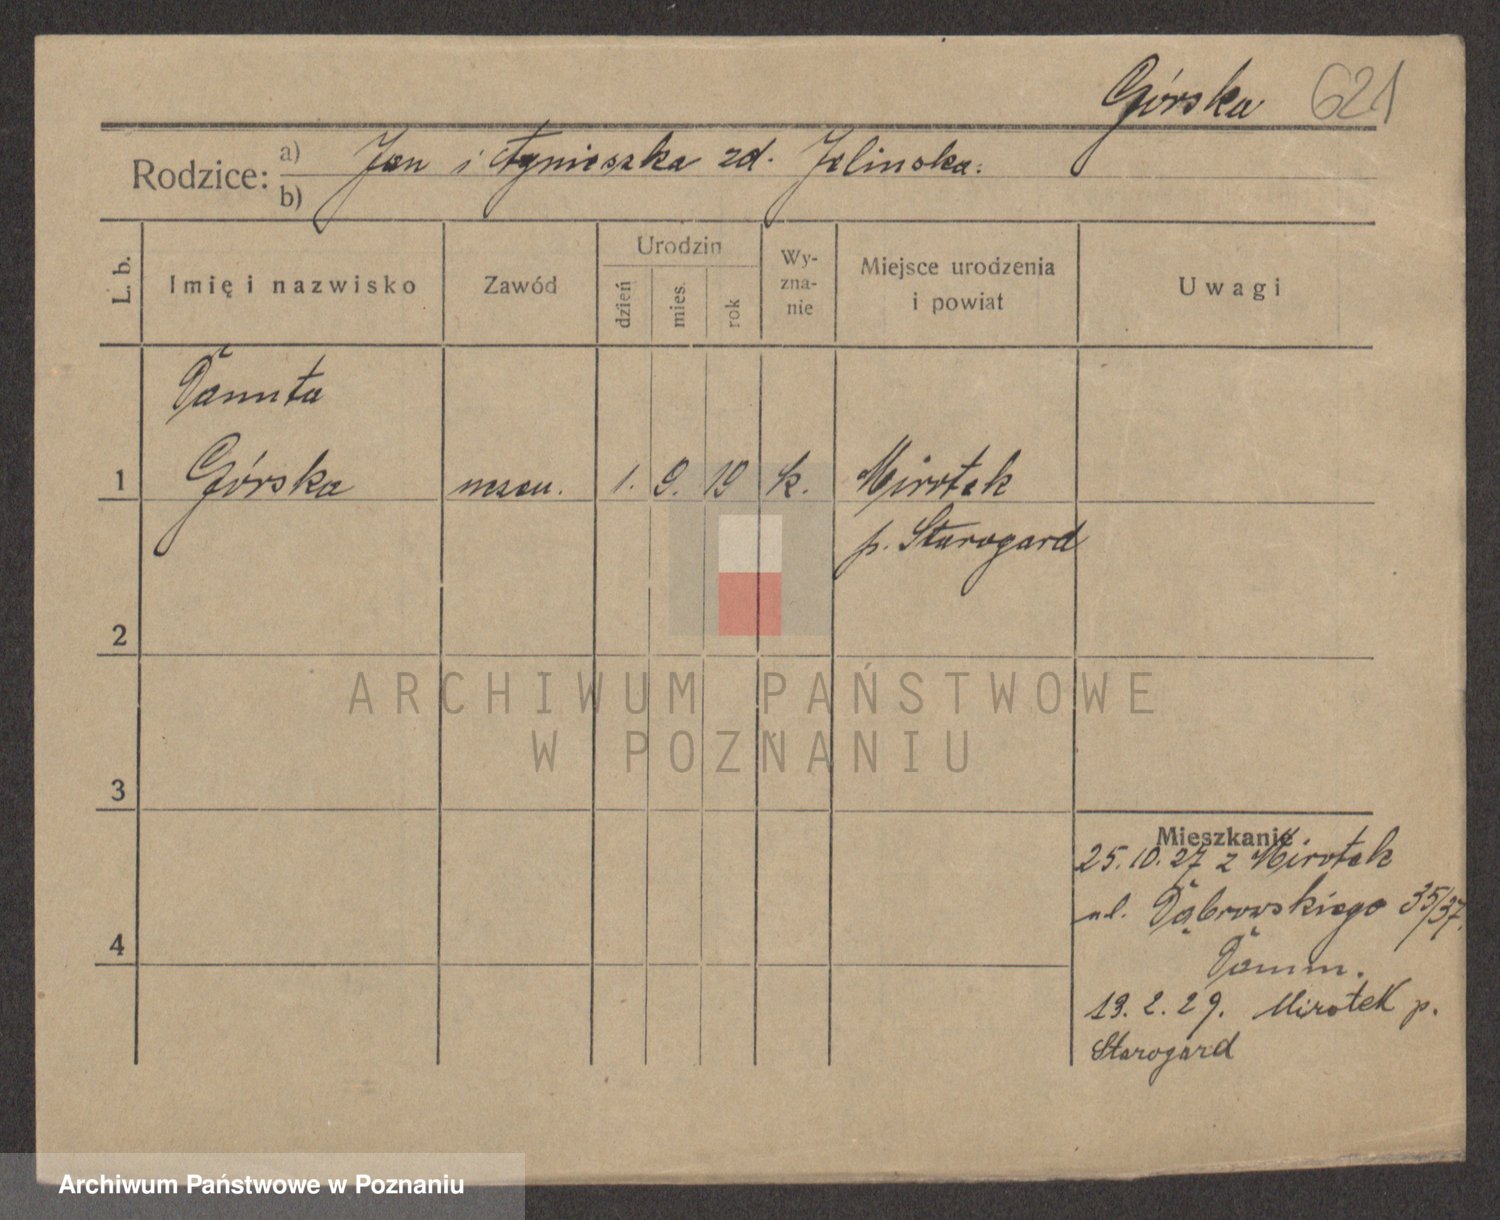 Górska 621
Rodzice: a) Jan i Agnieszka zd. Jelinska.
b)
L. b.
Imię i nazwisko
Zawód
Urodzin
dzień
mies.
rok
Wy-
zna-
nie
Miejsce urodzenia
i powiat
Uwagi
Danuta
1 Górska uczen. 1. 9. 19 k. Mirotek
p. Starogard
2
3
4
ARCHIWUM PAŃSTWOWE
W POZNANIU
Mieszkanie
25.10.27 z Mirotek
ul. Dąbrowskiego 35/37.
Damm.
19. 2. 29. Mirotek p.
Starogard
Archiwum Państwowe w Poznaniu